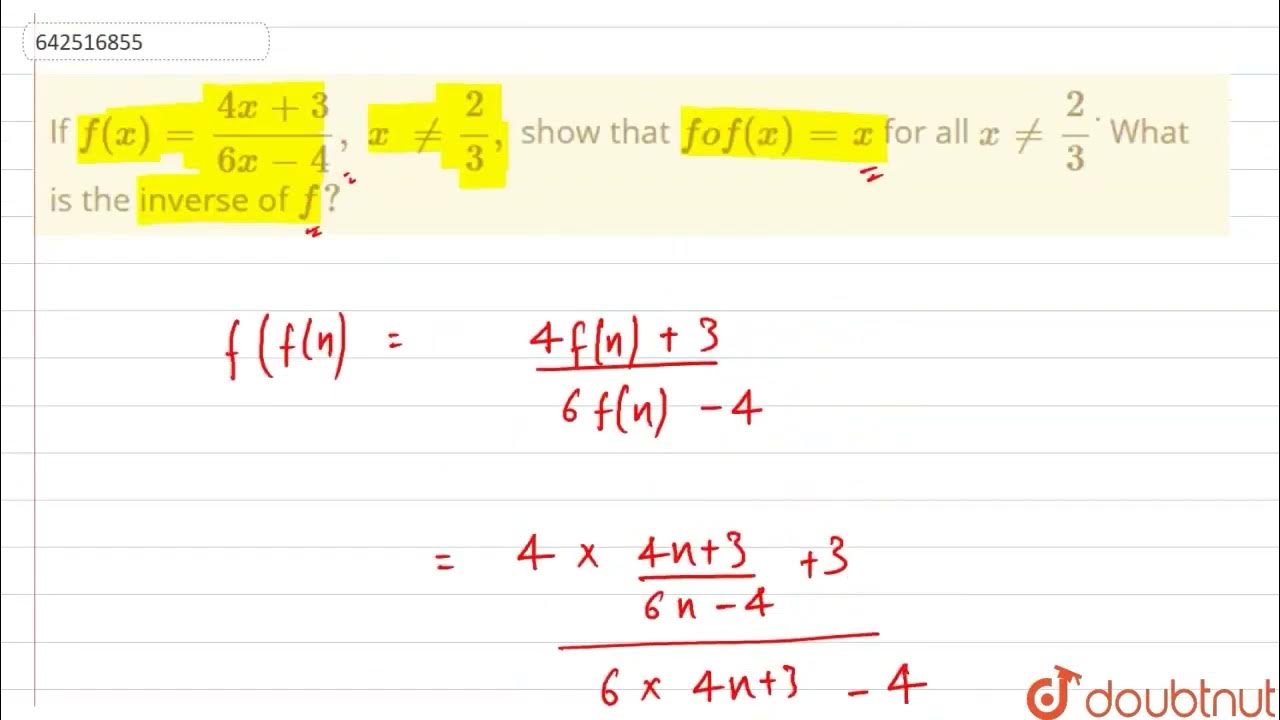 642516855
If f(x) = \frac{4x + 3}{6x - 4}, x ≠ \frac{2}{3}, show that fof(x) = x for all x ≠ \frac{2}{3}. What
is the inverse of f?
f(f(n) = \frac{4f(n) + 3}{6f(n) - 4}
= \frac{4 × \frac{4n+3}{6n-4} + 3}{6 × 4n+3 - 4}
doubtnut